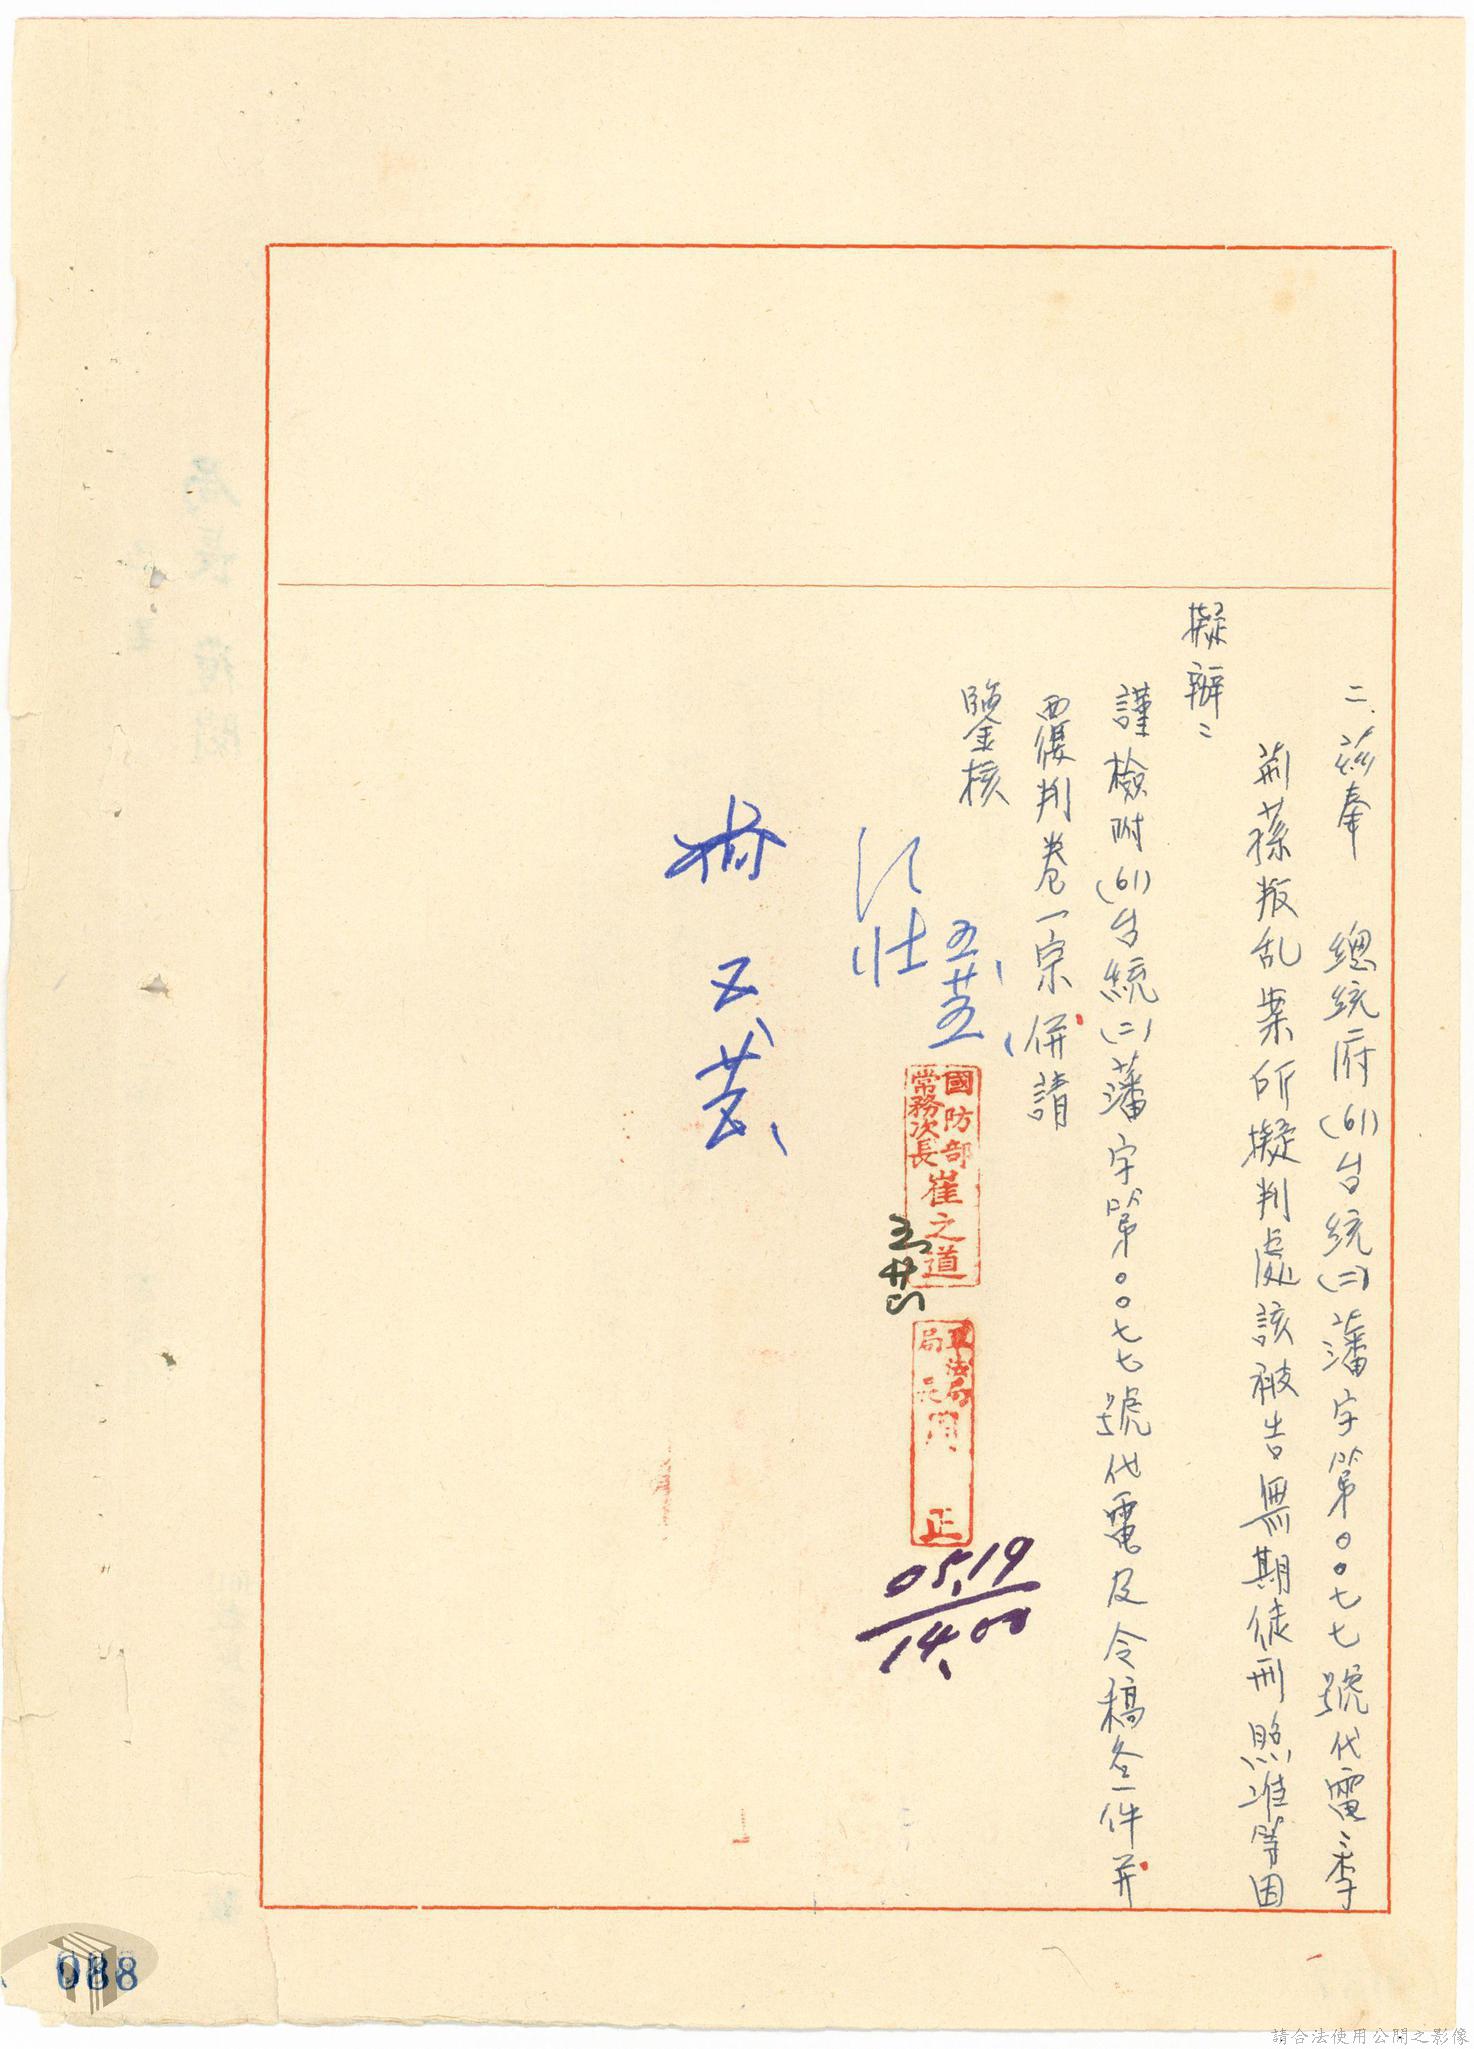 二、茲奉 總統府(61)台統(二)藩字第〇〇七七號代電：李
荊蓀叛乱案所擬判處該被告無期徒刑照准等因
擬辦：
謹檢附(61)台統(二)藩字第〇〇七七號代電及令稿各一件并
覆判卷一宗併請
鑒核
五、廿五、
國防部
常務次長
崔之道
軍法局
局長
周正
05.19
14.00
局長
088
請合法使用公開之影像